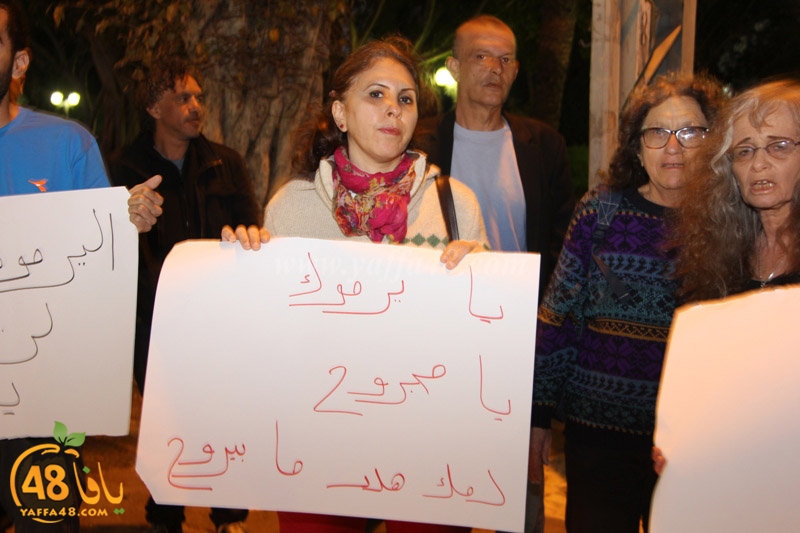 يا يرموك
يا مجروح
دمك هدر ما بيروح
اليرمو
لن
يافا
48
YAFFA48.COM